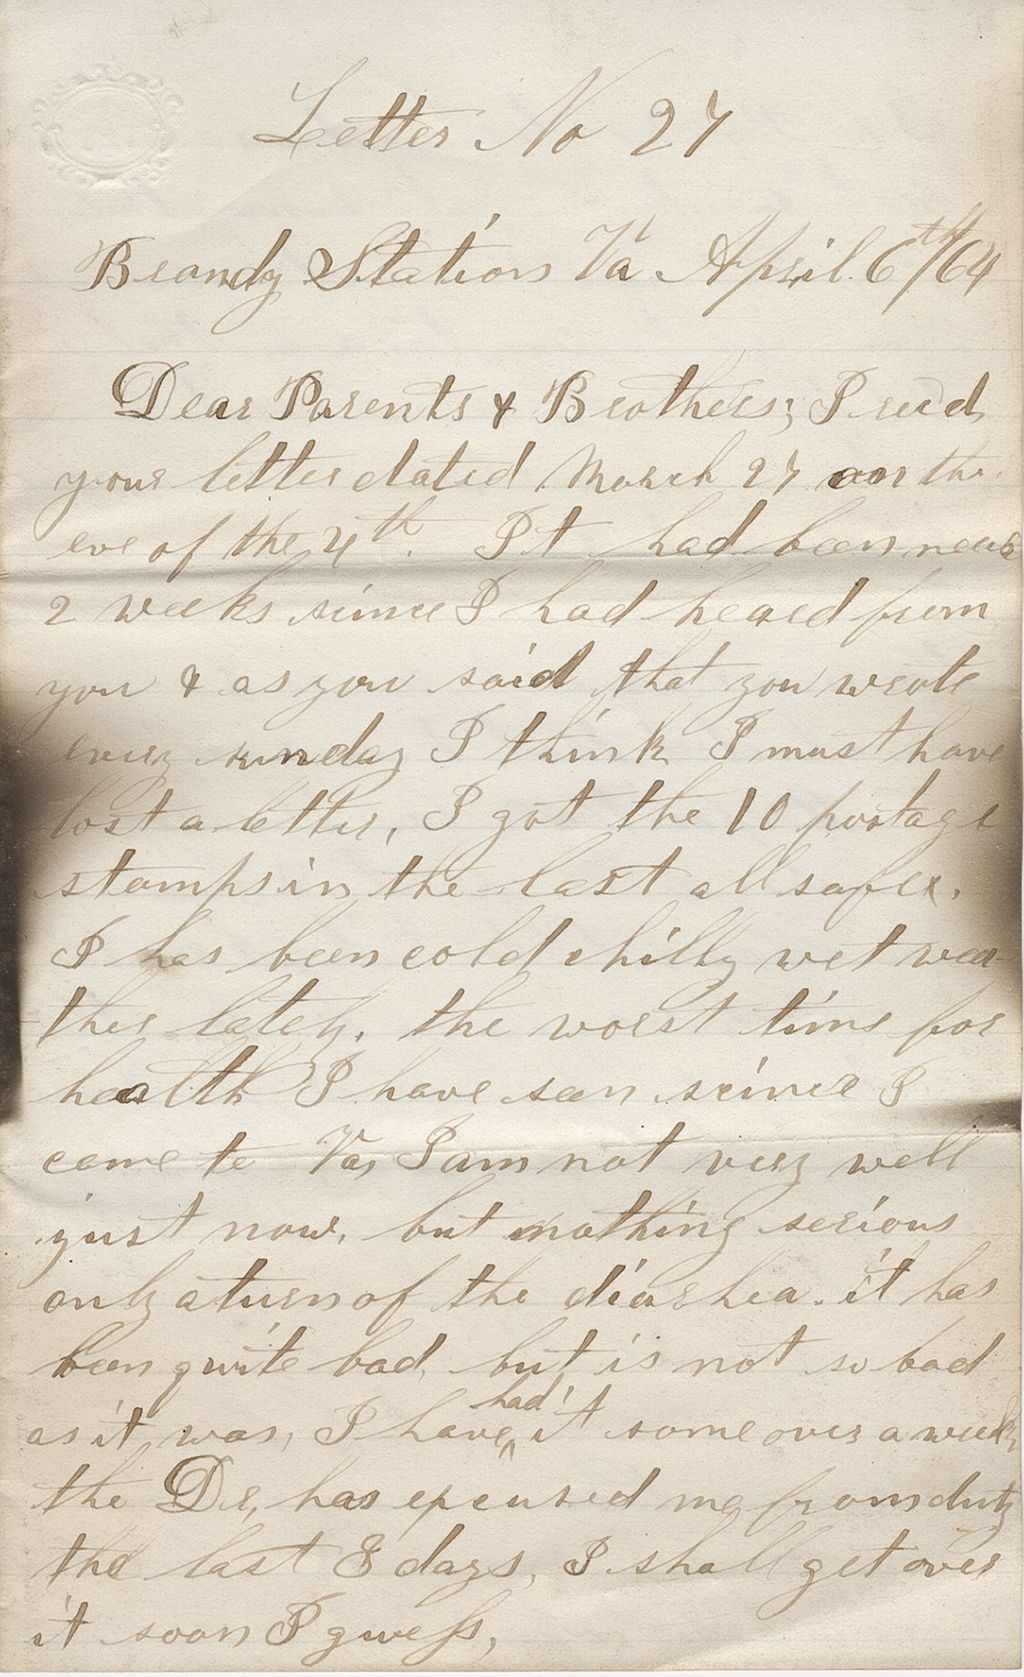 Letter No 27
Brandy Station Va April 6th/64
Dear Parents & Brothers; I recd
your letter dated March 27 on the
eve of the 4th. It had been near
2 weeks since I had heard from
you & as you said that you wrote
every sunday I think I must have
lost a letter, I got the 10 postage
stamps in the last all safe.
I has been cold chilly wet wea-
ther lately. the worst time for
health I have seen since I
came to Va, I am not very well
just now, but nothing serious
only a turn of the diarhea. it has
been quite bad, but is not so bad
as it was, I have had it some over a week,
the Dr, has excused me from duty
the last 8 days, I shall get over
it soon I guess,